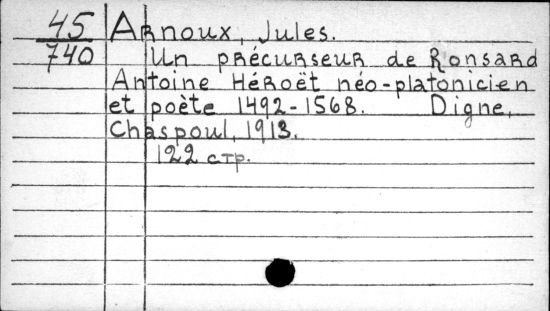 45 Arnoux, Jules.
740 Un précurseur de Ronsard
Antoine Héroët néo-platonicien
et poète 1492-1568. Digne,
Chaspoul, 1913.
122 стр.